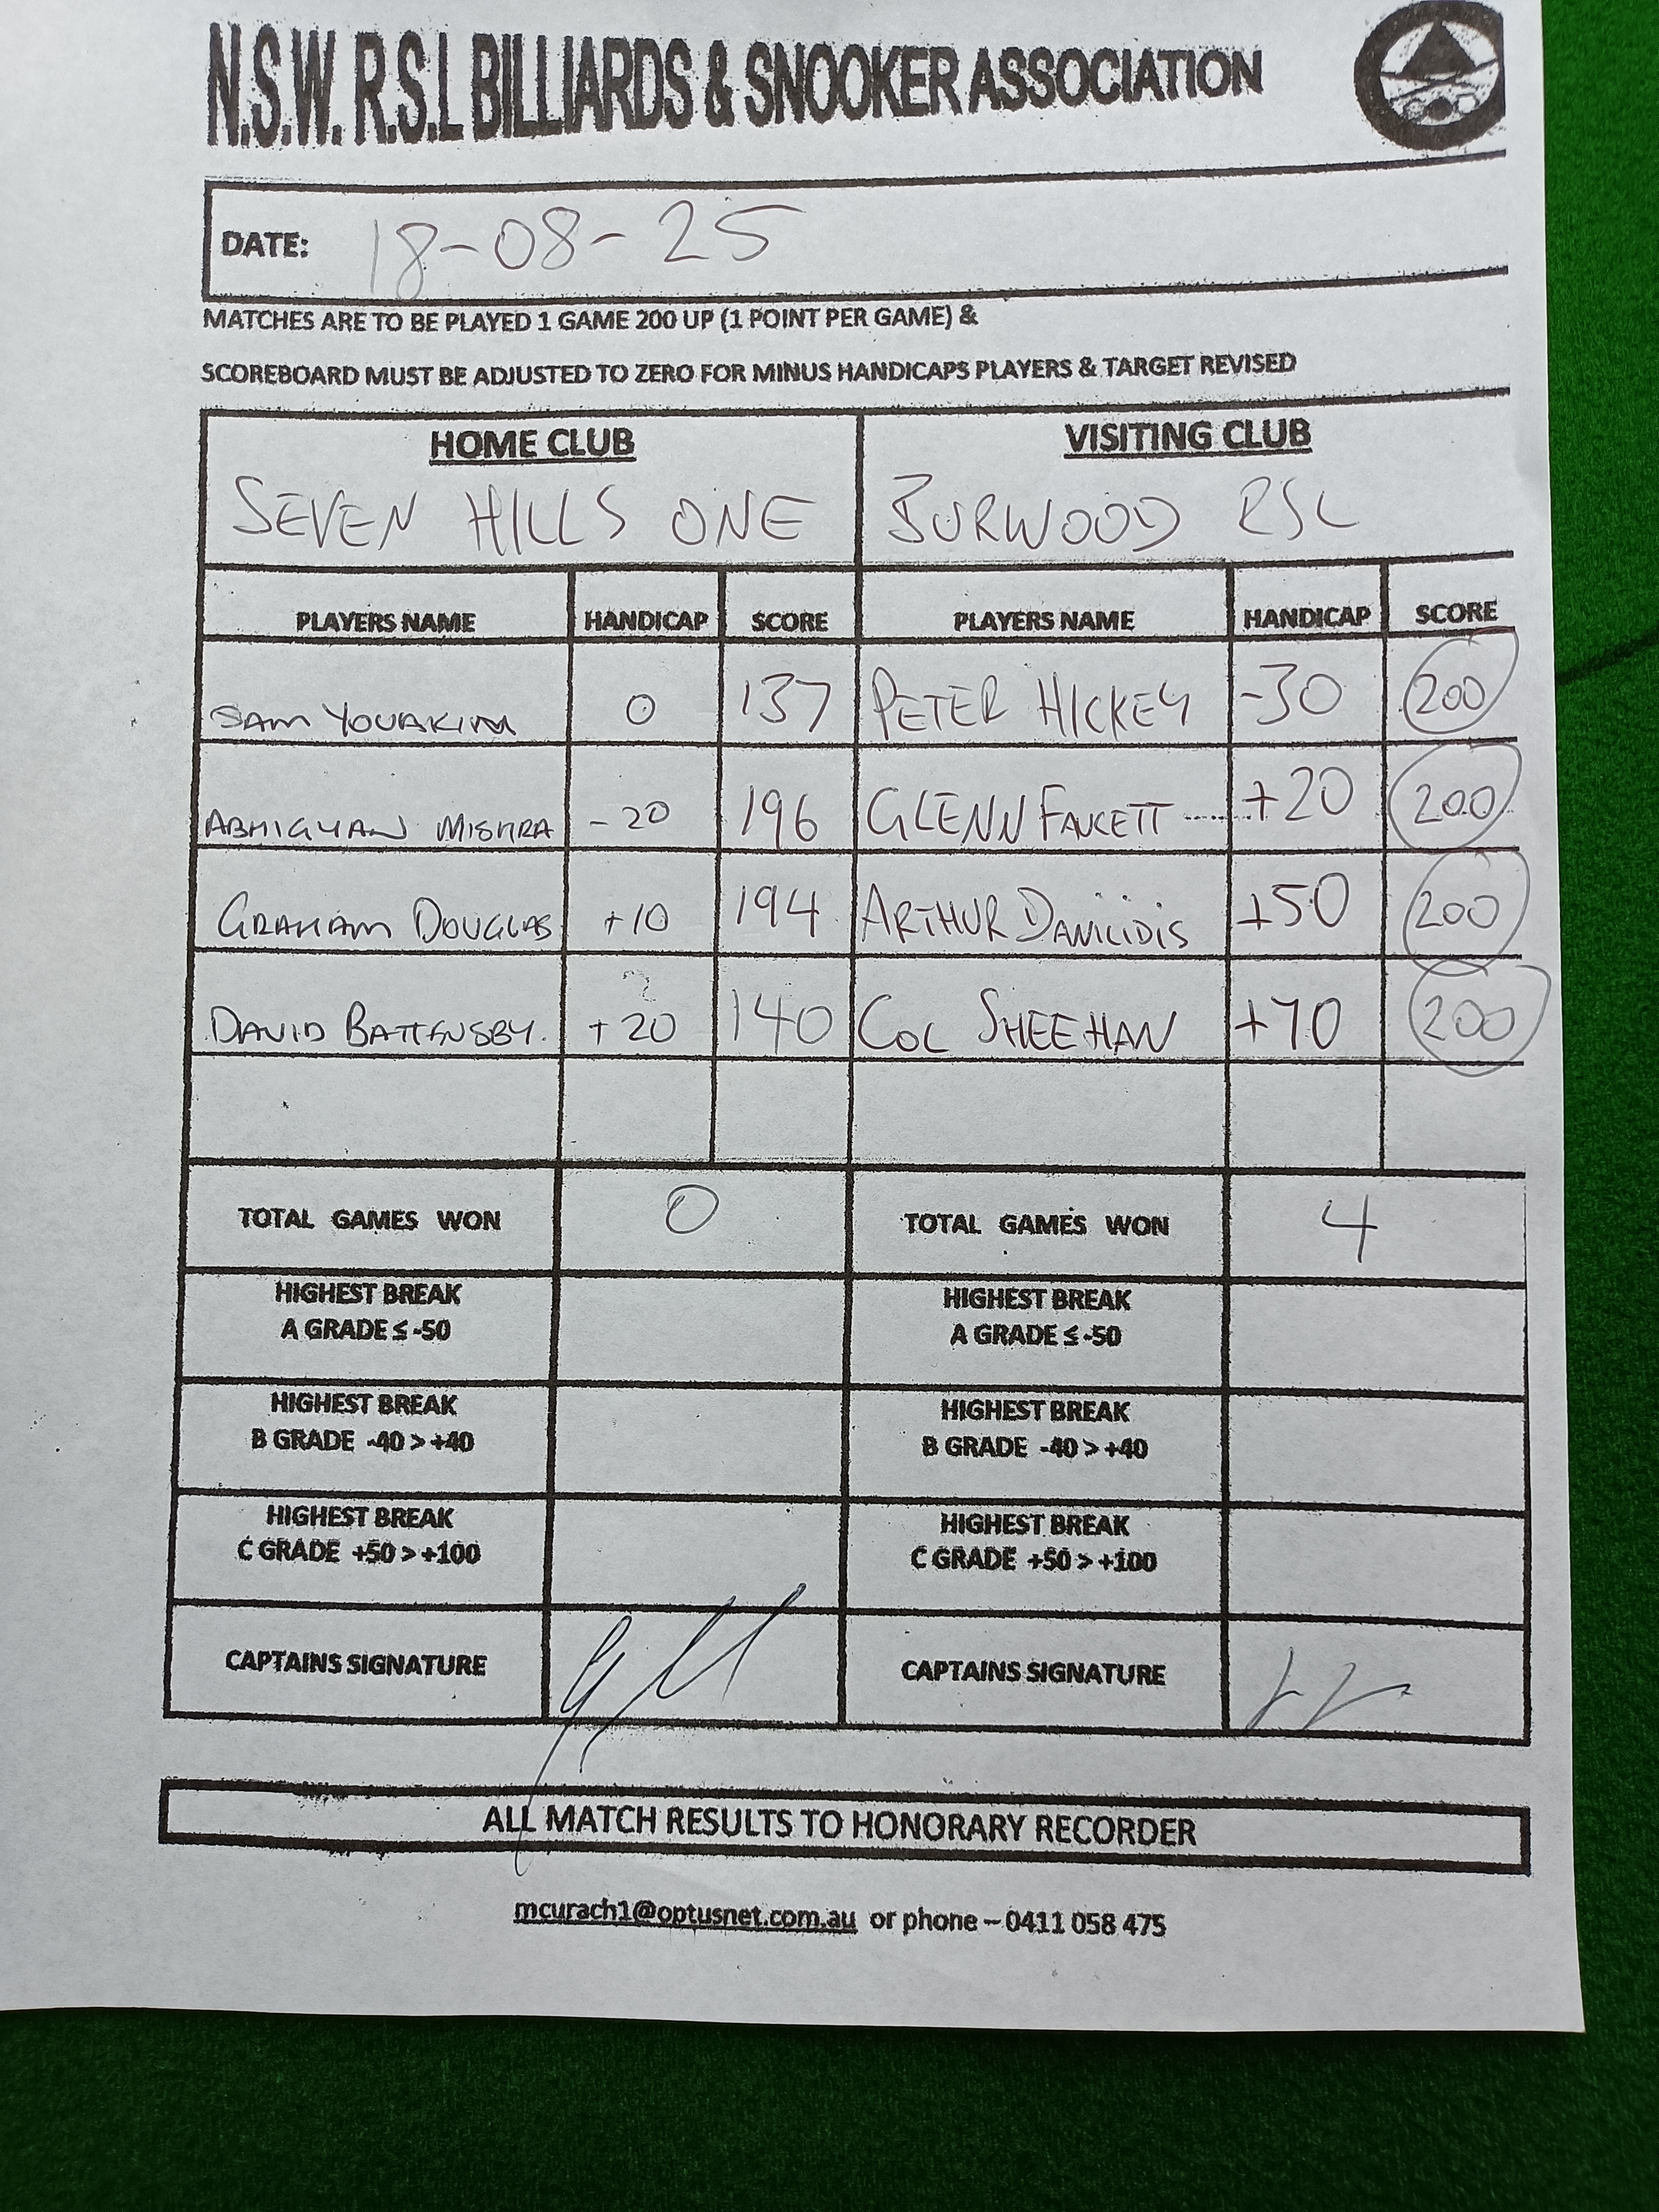 N.S.W. R.S.L BILLIARDS & SNOOKER ASSOCIATION
DATE: 18-08-25
MATCHES ARE TO BE PLAYED 1 GAME 200 UP (1 POINT PER GAME) &
SCOREBOARD MUST BE ADJUSTED TO ZERO FOR MINUS HANDICAPS PLAYERS & TARGET REVISED
HOME CLUB VISITING CLUB
SEVEN HILLS ONE BURWOOD RSL
PLAYERS NAME HANDICAP SCORE PLAYERS NAME HANDICAP SCORE
SAM YOUAKIM 0 137 PETER HICKEY -30 200
ABHIGYAN MISHRA -20 196 GLENN FAUCETT +20 200
GRAHAM DOUGLAS +10 194 ARTHUR DANILIDIS +50 200
DAVID BATTENSBY. +20 140 COL SHEEHAN +70 200
TOTAL GAMES WON 0 TOTAL GAMES WON 4
HIGHEST BREAK HIGHEST BREAK
A GRADE ≤ -50 A GRADE ≤ -50
HIGHEST BREAK HIGHEST BREAK
B GRADE -40 > +40 B GRADE -40 > +40
HIGHEST BREAK HIGHEST BREAK
C GRADE +50 > +100 C GRADE +50 > +100
CAPTAINS SIGNATURE CAPTAINS SIGNATURE
ALL MATCH RESULTS TO HONORARY RECORDER
mcurach1@optusnet.com.au or phone – 0411 058 475